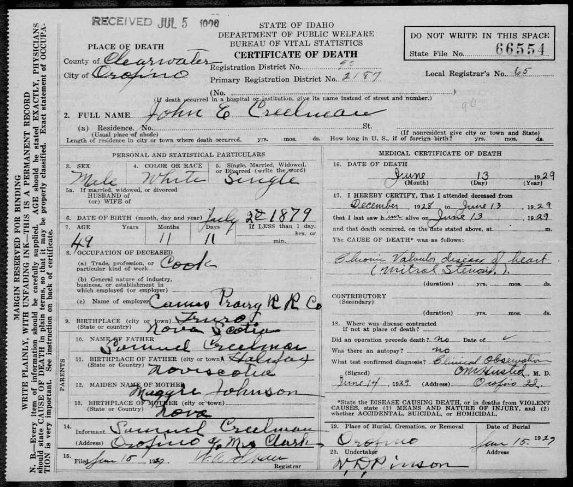 RECEIVED JUL 5
STATE OF IDAHO
DEPARTMENT OF PUBLIC WELFARE
BUREAU OF VITAL STATISTICS
CERTIFICATE OF DEATH
DO NOT WRITE IN THIS SPACE
State File No. 66554
PLACE OF DEATH
County of Clearwater
City of Orofino
Registration District No.
Primary Registration District No. 2187
Local Registrar's No. 65
(No.
(If death occurred in a hospital or institution, give its name instead of street and number.)
2. FULL NAME John E Creelman
(a) Residence. No. St.
(Usual place of abode) (If nonresident give city or town and State)
Length of residence in city or town where death occurred. yrs. mos. ds. How long in U. S., if of foreign birth? yrs. mos. ds.
PERSONAL AND STATISTICAL PARTICULARS
3. SEX Male
4. COLOR OR RACE White
5. Single, Married, Widowed, or Divorced (write the word) Single
5a. If married, widowed, or divorced
HUSBAND of
(or) WIFE of
6. DATE OF BIRTH (month, day and year) July 2 1879
7. AGE 49 Years 11 Months 11 Days
If LESS than 1 day. hrs. or min.
8. OCCUPATION OF DECEASED
(a) Trade, profession, or particular kind of work Cook
(b) General nature of industry, business, or establishment in which employed (or employer)
(c) Name of employer Camas Prairy R R Co
9. BIRTHPLACE (city or town) Truro
(State or country) Nova Scotia
10. NAME OF FATHER Samuel Creelman
11. BIRTHPLACE OF FATHER (city or town) Halifax
(State or country) Novascotia
12. MAIDEN NAME OF MOTHER Maggie Johnson
13. BIRTHPLACE OF MOTHER (city or town)
(State or country) Nova
PARENTS
14. Informant Samuel Creelman
(Address) Orofino % Mrs Clark
15. Filed Jun 15 1929
Registrar
MEDICAL CERTIFICATE OF DEATH
16. DATE OF DEATH June 13 1929
(Month) (Day) (Year)
17. I HEREBY CERTIFY, That I attended deceased from
December 1928 to June 13 1929
that I last saw him alive on June 13 1929
and that death occurred, on the date stated above, at m.
The CAUSE OF DEATH* was as follows:
Chronic Valvular disease of heart
(Mitral Stenosis)
(duration) yrs. mos. ds.
CONTRIBUTORY
(Secondary)
(duration) yrs. mos. ds.
18. Where was disease contracted if not at place of death?
Did an operation precede death? no Date of
Was there an autopsy? no
What test confirmed diagnosis? Clinical Observation
(Signed) M. D.
June 14 1929 (Address) Orofino
*State the DISEASE CAUSING DEATH, or in deaths from VIOLENT CAUSES, state (1) MEANS AND NATURE OF INJURY, and (2) whether ACCIDENTAL, SUICIDAL, or HOMICIDAL.
19. Place of Burial, Cremation, or Removal Orofino
Date of Burial Jun 15 1929
20. Undertaker
MARGIN RESERVED FOR BINDING
WRITE PLAINLY, WITH UNFADING INK—THIS IS A PERMANENT RECORD
N. B.—Every item of information should be carefully supplied. AGE should be stated EXACTLY. PHYSICIANS should state CAUSE OF DEATH in plain terms, so that it may be properly classified. Exact statement of OCCUPATION is very important. See instruction on back of certificate.